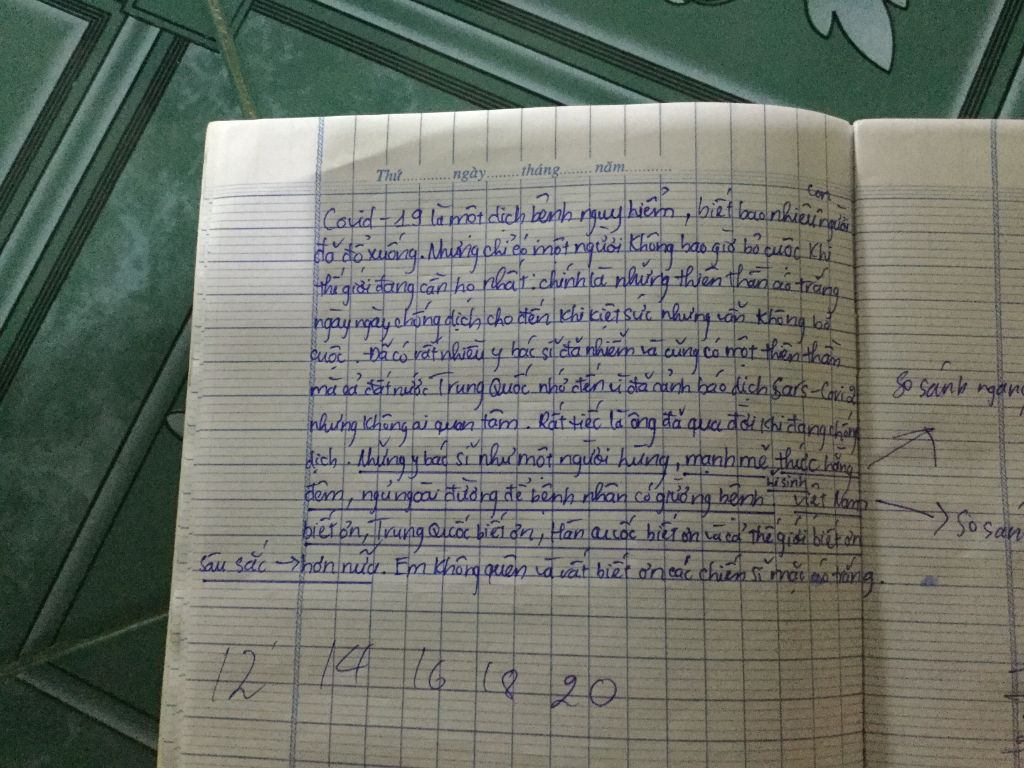 Thứ............ngày.........tháng.........năm............
con
Covid-19 là một dịch bệnh nguy hiểm, biết bao nhiêu người
đã đổ xuống. Nhưng chỉ có một người không bao giờ bỏ cuộc khi
thế giới đang cần họ nhất. chính là những thiên thần áo trắng
ngày ngày chống dịch cho đến khi kiệt sức nhưng vẫn không bỏ
cuộc. Đã có rất nhiều y bác sĩ đã nhiễm và cũng có một thiên thần
mà cả đất nước Trung Quốc nhớ đến vì đã cảnh báo dịch Sars-Covi2
nhưng không ai quan tâm. Rất tiếc là ông đã qua đời khi đang chống
dịch. Những y bác sĩ như một người hùng, mạnh mẽ thức hằng
hi sinh
đêm, ngủ ngoài đường để bệnh nhân có giường bệnh Việt Nam
biết ơn, Trung Quốc biết ơn, Hàn Quốc biết ơn và cả thế giới biết ơn
sâu sắc → hơn nữa. Em không quên và rất biết ơn các chiến sĩ mặc áo trắng.
so sánh ngang
so sán
12 14 16 18 20